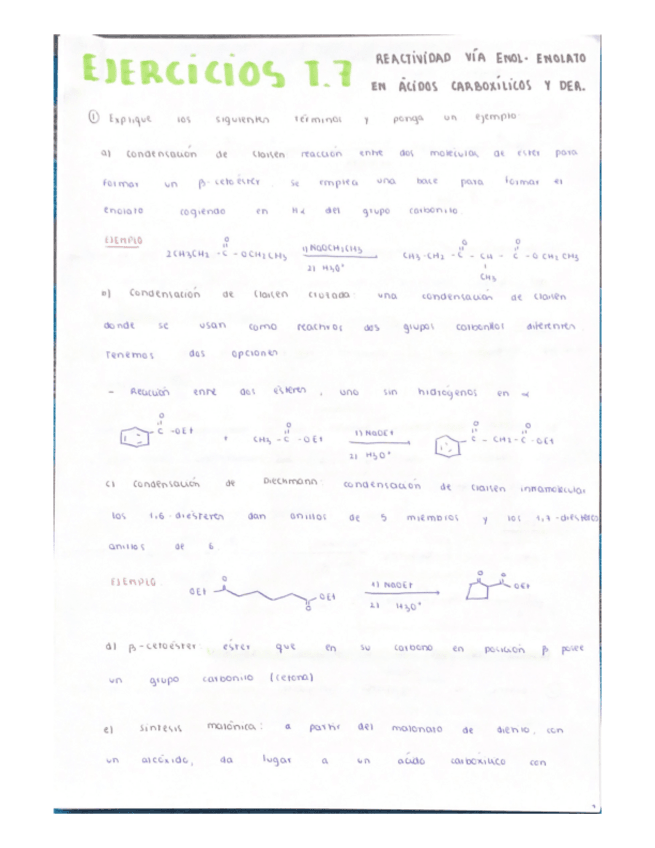 EJERCICIOS T.7
REACTIVIDAD VÍA ENOL- ENOLATO
EN ÁCIDOS CARBOXÍLICOS Y DER.
① Explique los siguientes términos y ponga un ejemplo:
a) condensación de claisen reacción entre dos moléculas de ester para
formar un β-cetoéster. se emplea una base para formar el
enolato cogiendo en Hα del grupo carbonilo
EJEMPLO
2CH3CH2 - C - OCH2CH3
O
1) NaOCH2CH3
2) H3O⁺
CH3-CH2 - C - CH - C - O CH2 CH3
O O
CH3
b) Condensación de claisen cruzada: una condensación de claisen
donde se usan como reactivos dos grupos carbonilos diferentes
Tenemos dos opciones
- Reacción entre dos ésteres, uno sin hidrógenos en α
O
C -OEt
+
O
CH3 - C - OEt
1) NaOEt
2) H3O⁺
O O
C - CH2 - C - OEt
c) Condensación de Dieckmann: condensación de claisen intramolecular
los 1,6-diésteres dan anillos de 5 miembros y los 1,7-diésteres
anillos de 6
EJEMPLO:
OEt
O
OEt
O
1) NaOEt
2) H3O⁺
O O
OEt
d) β-cetoéster: éster que en su carbono en posición β posee
un grupo carbonilo (cetona)
e) síntesis malónica: a partir del malonato de dietilo, con
un alcóxido, da lugar a un ácido carboxílico con